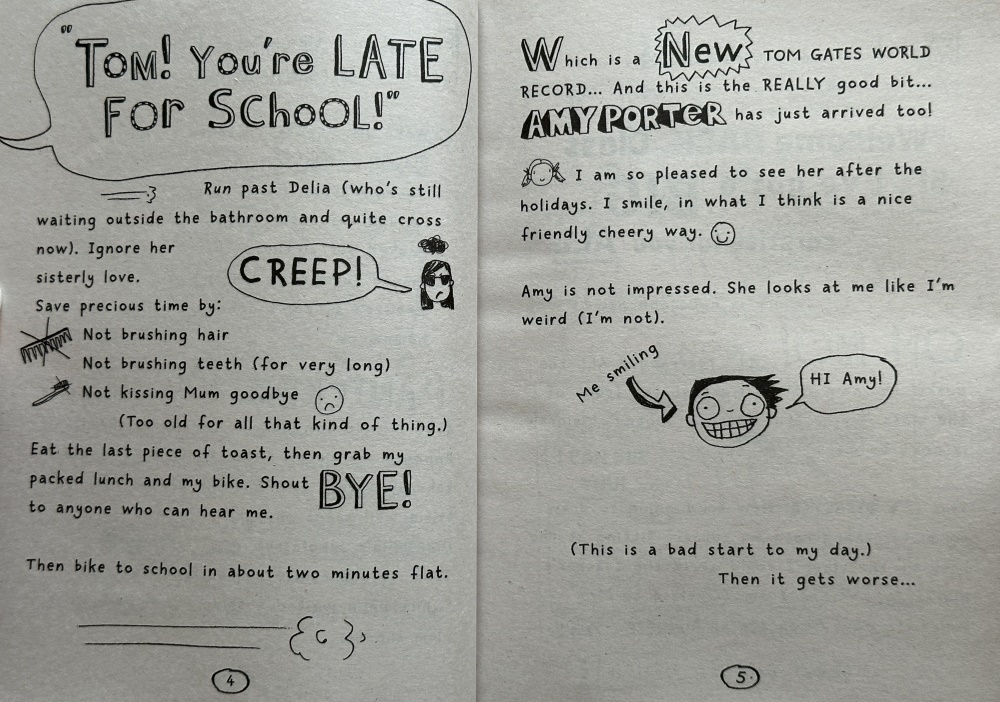 "TOM! You're LATE
FOR SCHOOL!"
Run past Delia (who's still
waiting outside the bathroom and quite cross
now). Ignore her
sisterly love.
CREEP!
Save precious time by:
Not brushing hair
Not brushing teeth (for very long)
Not kissing Mum goodbye
(Too old for all that kind of thing.)
Eat the last piece of toast, then grab my
packed lunch and my bike. Shout BYE!
to anyone who can hear me.
Then bike to school in about two minutes flat.
4
Which is a New TOM GATES WORLD
RECORD... And this is the REALLY good bit...
AMY PORTER has just arrived too!
I am so pleased to see her after the
holidays. I smile, in what I think is a nice
friendly cheery way.
Amy is not impressed. She looks at me like I'm
weird (I'm not).
Me smiling
HI Amy!
(This is a bad start to my day.)
Then it gets worse...
5